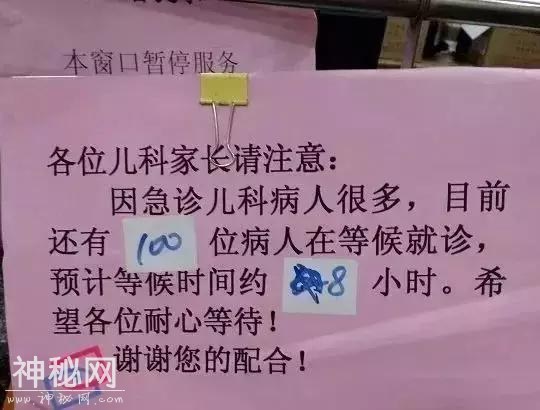 本窗口暂停服务
各位儿科家长请注意：
因急诊儿科病人很多，目前
还有 100 位病人在等候就诊，
预计等候时间约 8 小时。希
望各位耐心等待！
谢谢您的配合！
神秘网
www.shenmw.com